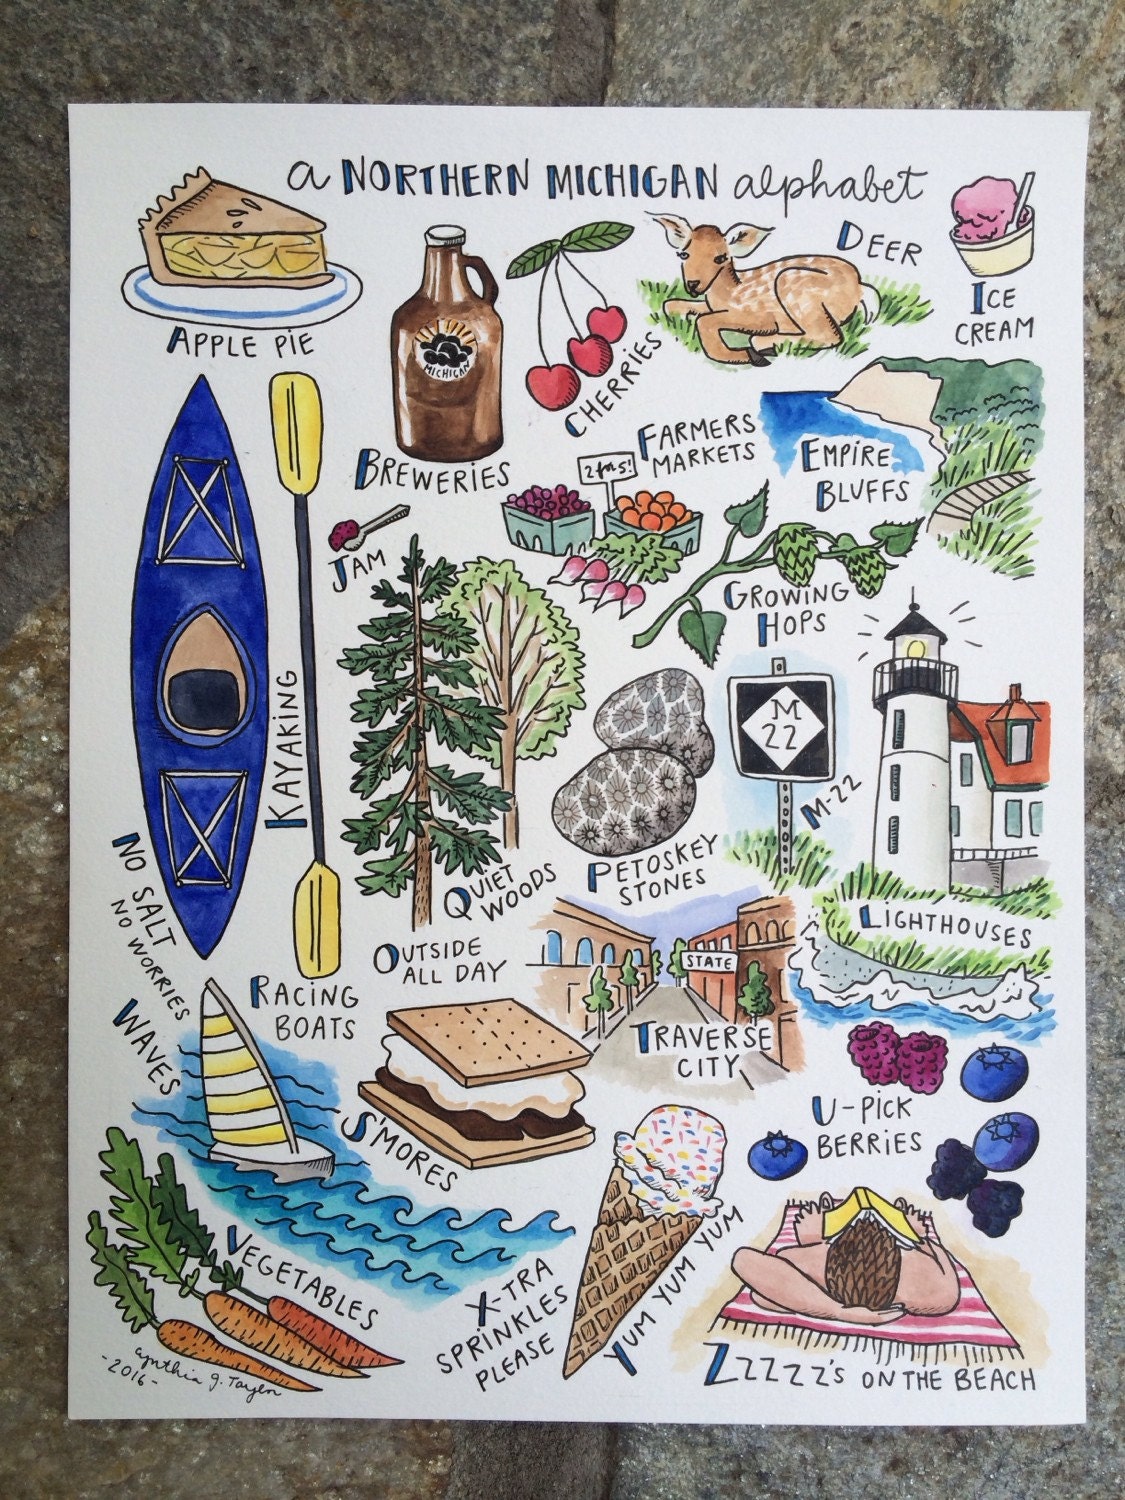 a NORTHERN MICHIGAN alphabet
APPLE PIE
MICHIGAN
BREWERIES
CHERRIES
DEER
ICE
CREAM
FARMERS
MARKETS
2 for 5!
EMPIRE
BLUFFS
JAM
GROWING
HOPS
KAYAKING
M
22
M-22
QUIET
WOODS
PETOSKEY
STONES
LIGHTHOUSES
NO SALT
NO WORRIES
OUTSIDE
ALL DAY
RACING
BOATS
STATE
TRAVERSE
CITY
WAVES
S'MORES
U-PICK
BERRIES
VEGETABLES
X-TRA
SPRINKLES
PLEASE
YUM YUM YUM
ZZZZZZ'S ON THE BEACH
cynthia g. Taylor
-2016-